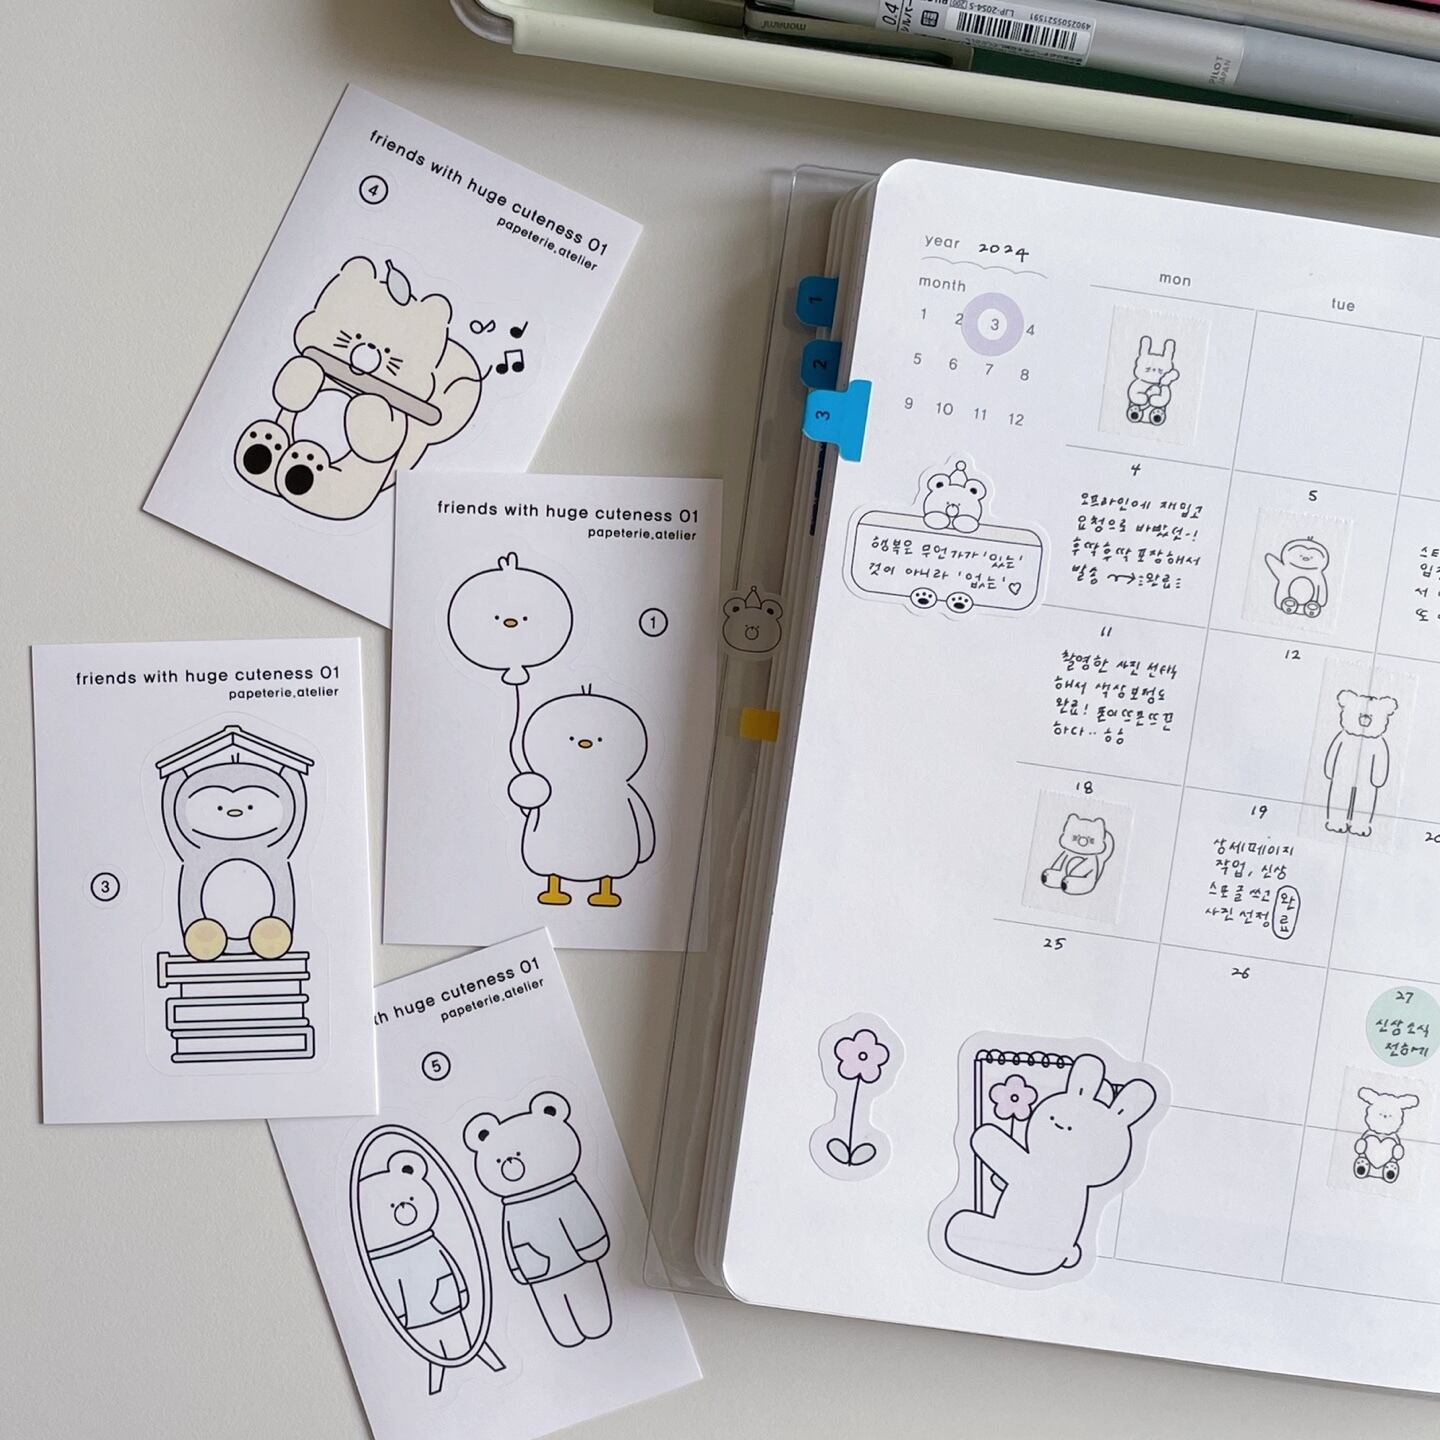 0.4
LJP-20S4-S
4902505521591
PILOT
JAPAN
friends with huge cuteness 01
papeterie.atelier
4
friends with huge cuteness 01
papeterie.atelier
1
friends with huge cuteness 01
papeterie.atelier
3
huge cuteness 01
papeterie.atelier
5
1
2
3
year 2024
month
1 2 3 4
5 6 7 8
9 10 11 12
mon
tue
행복은 무언가가 '있는'
것이 아니라 '없는' ♡
4
오프라인에 재입고
요청으로 바빴던~!
후딱후딱 포장해서
발송 완료
5
11
촬영한 사진 선택
해서 색상보정도
완료! 톤이 뜨문뜨끈
하다..
12
18
19
상세페이지
작업, 신상
스포글 쓰고
사진 선정 완료
20
25
26
27
신상소식
전하기